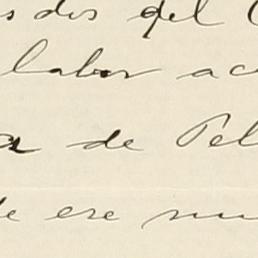 dos del
labor ac
a de Pel
de ese mu